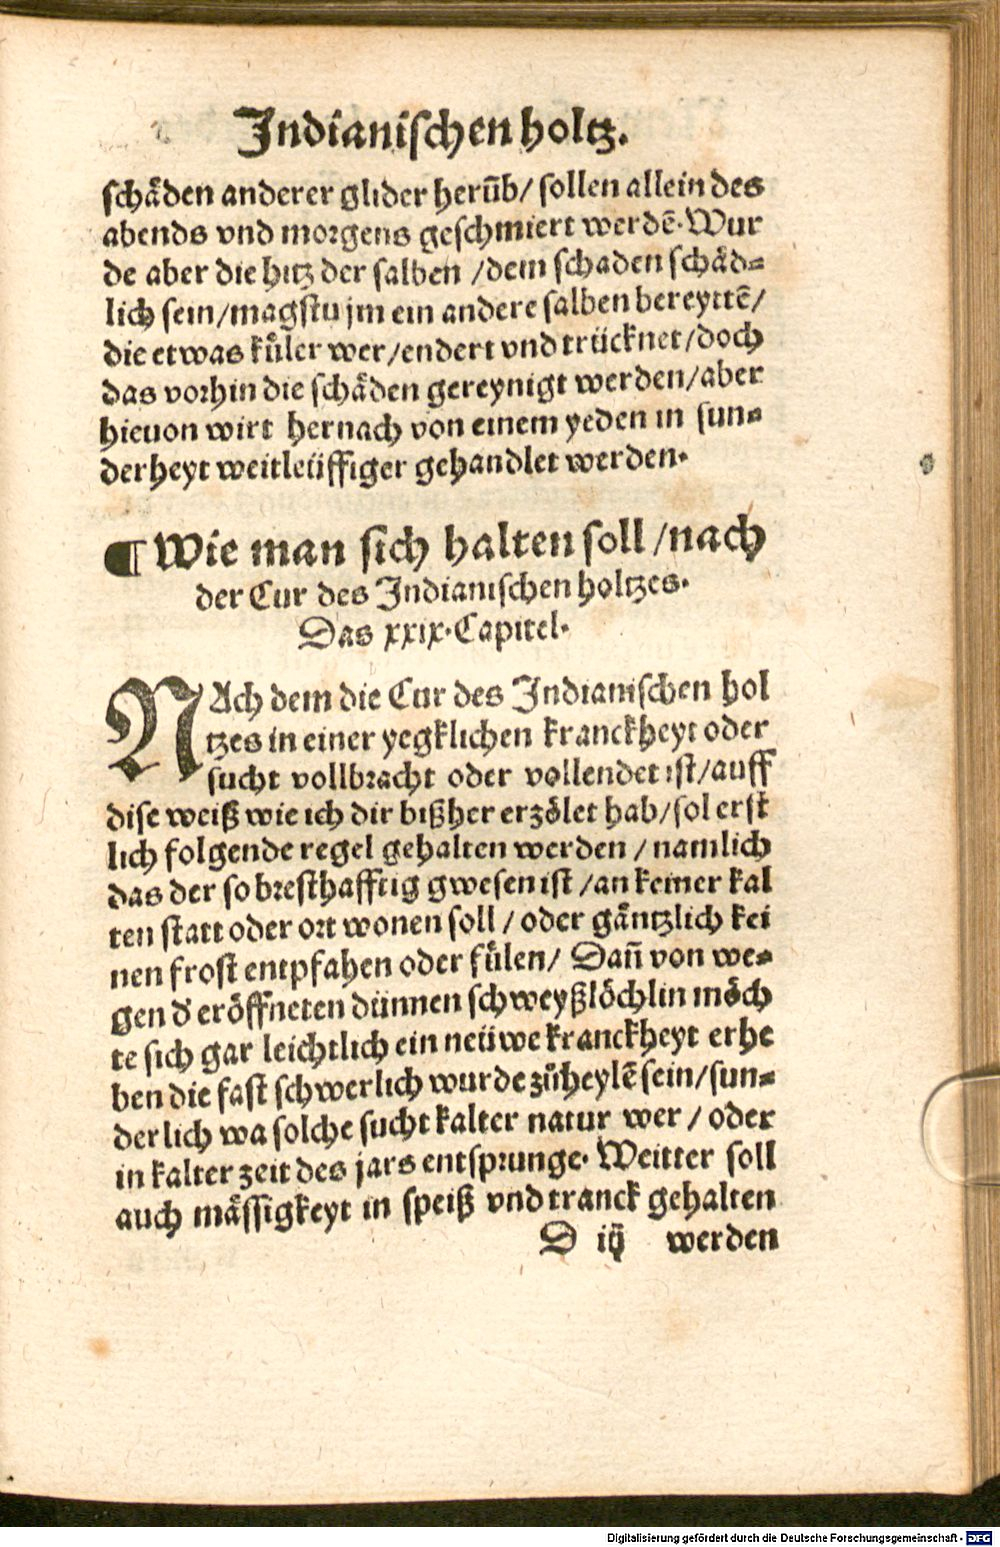 Indianischen holtz.
schaͤden anderer glider herum̃b/ sollen allein des
abends vnd morgens geschmiert werdē. Wur
de aber die hitz der salben /dem schaden schaͤd⸗
lich sein/magstu jm ein andere salben bereyttē/
die etwas kuͤler wer/endert vnd trücknet/doch
das vorhin die schaͤden gereynigt werden/aber
hieuon wirt hernach von einem yeden in sun⸗
derheyt weitleüffiger gehandlet werden.
¶ Wie man sich halten soll /nach
der Cur des Indianischen holtzes.
Das xxix. Capitel.
NAch dem die Cur des Indianischen hol
tzes in einer yegklichen kranckheyt oder
sucht vollbracht oder vollendet ist/auff
dise weiß wie ich dir bißher erzoͤlet hab/sol erst
lich folgende regel gehalten werden /namlich
das der so bresthafftig gwesen ist /an keiner kal
ten statt oder ort wonen soll / oder gaͤntzlich kei
nen frost entpfahen oder fuͤlen/ Dañ von we⸗
gen d' eroͤffneten dünnen schweyßloͤchlin moͤch
te sich gar leichtlich ein neüwe kranckheyt erhe
ben die fast schwerlich wurde zuͦheylē sein/sun⸗
derlich wa solche sucht kalter natur wer / oder
in kalter zeit des jars entsprunge. Weitter soll
auch maͤssigkeyt in speiß vnd tranck gehalten
D iij werden
Digitalisierung gefördert durch die Deutsche Forschungsgemeinschaft - DFG